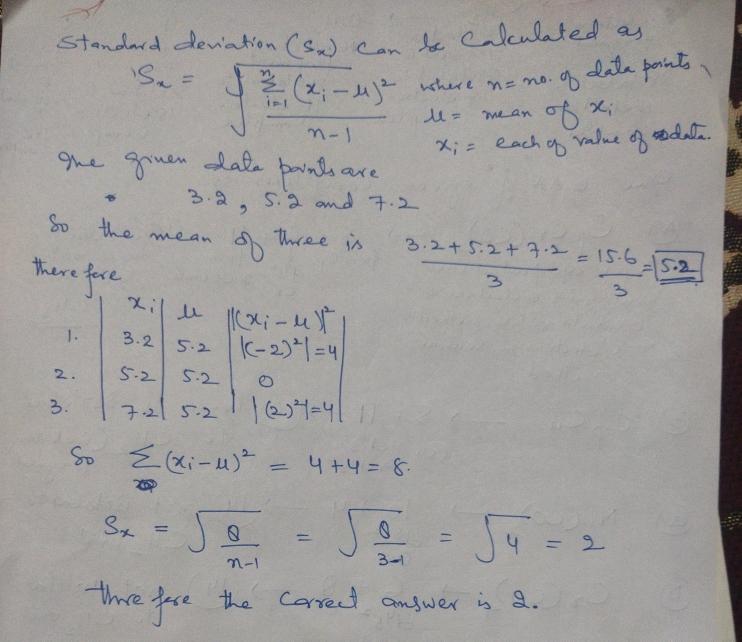 Standard deviation (Sx) can be calculated as
Sx = √(Σ(i=1 to n) (xi - μ)² / n-1) where n = no. of data points,
μ = mean of xi
xi = each of value of data.
The given data points are
3.2, 5.2 and 7.2
So the mean of three is 3.2 + 5.2 + 7.2 / 3 = 15.6 / 3 = 5.2
there fore
xi | μ | |(xi - μ)²|
1. 3.2 | 5.2 | |(-2)²| = 4
2. 5.2 | 5.2 | 0
3. 7.2 | 5.2 | |(2)²| = 4
So Σ(xi - μ)² = 4 + 4 = 8.
Sx = √(8 / n-1) = √(8 / 3-1) = √4 = 2
there fore the correct answer is 2.